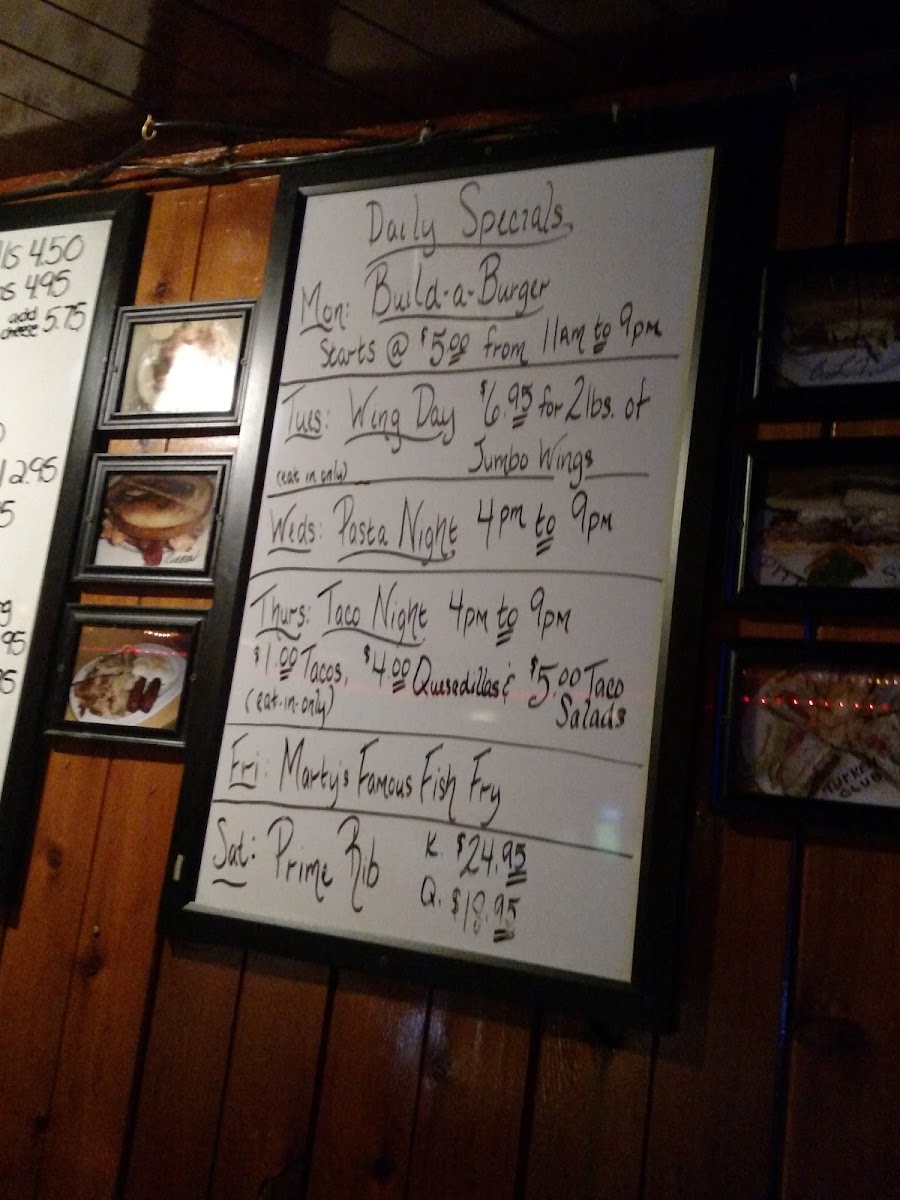 4.50
4.95
add
cheese 5.75
2.95
95
Daily Specials
Mon: Build-a-Burger
Starts @ $5.00 from 11am to 9pm
Tues: Wing Day $6.95 for 2lbs. of
(eat in only) Jumbo Wings
Weds: Pasta Night 4pm to 9pm
Thurs: Taco Night 4pm to 9pm
$1.00 Tacos, $4.00 Quesadillas & $5.00 Taco
(eat-in-only) Salads
Fri: Marty's Famous Fish Fry
Sat: Prime Rib K. $24.95
Q. $18.95
TURKEY
CLUB